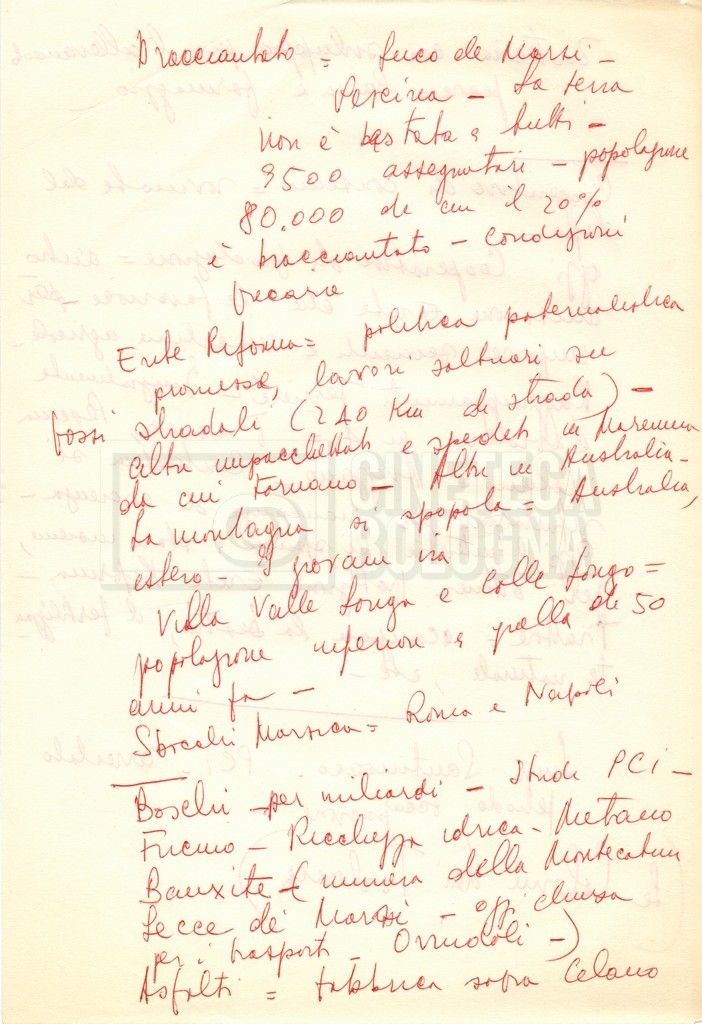 Bracciantato = Luco de Marsi –
Pescina – La terra
non è bastata a tutti –
9500 assegnatari – popolazione
80.000 de cui il 20%
è bracciantato – condizioni
precarie
Ente Riforma = politica paternalistica
promesse, lavori saltuari su
fossi stradali (240 Km di strada) –
altri impacchettati e spediti in Maremma
da cui tornano – Altri in Australia –
La montagna si spopola = Australia,
estero – I giovani via
Villa Valle Longa e Colle Longo =
popolazione inferiore a quella di 50
anni fa –
Sbocchi Marsica = Roma e Napoli
Boschi – per miliardi – studi PCI –
Fucino – Ricchezza idrica – Metano
Bauxite – (miniera della Montecatini
Lecce de' Marsi – oggi chiusa
per i trasporti – Ovindoli –)
Asfalti = fabbrica sopra Celano
CINETECA
BOLOGNA